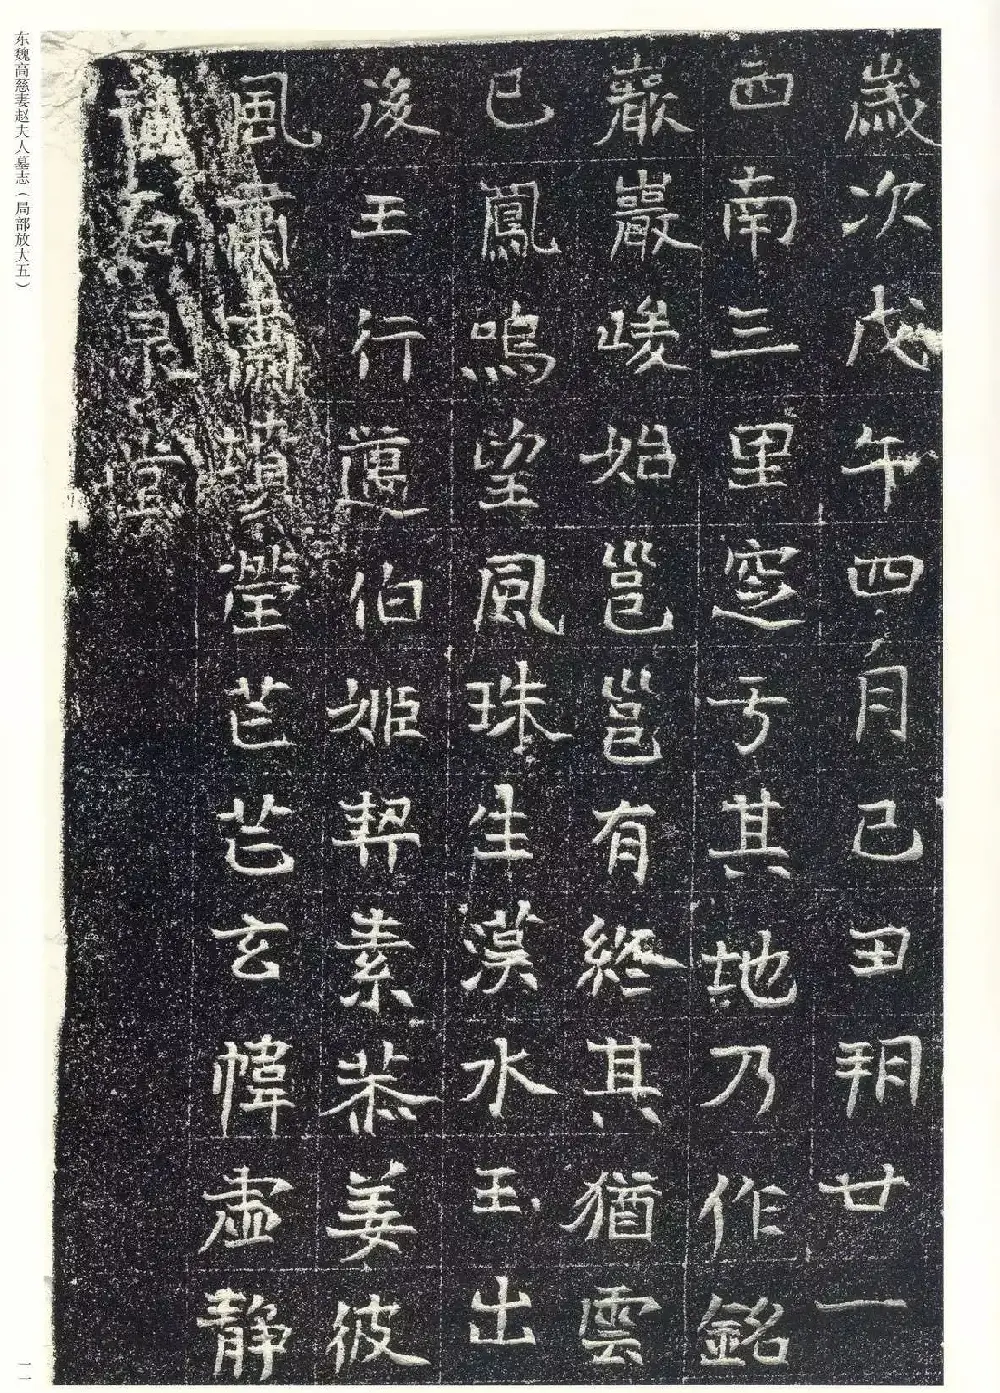 歲次戊午四月己丑朔廿一
西南三里窆于其地乃作銘
巖巖峻始邕邕有終其猶雲
已鳳鳴望風珠生漢水玉出
後王行邁伯姬契素恭姜彼
風肅肅墳塋芒芒玄幃虛靜
泉堂
东魏高慈妻赵夫人墓志（局部放大五）
一一